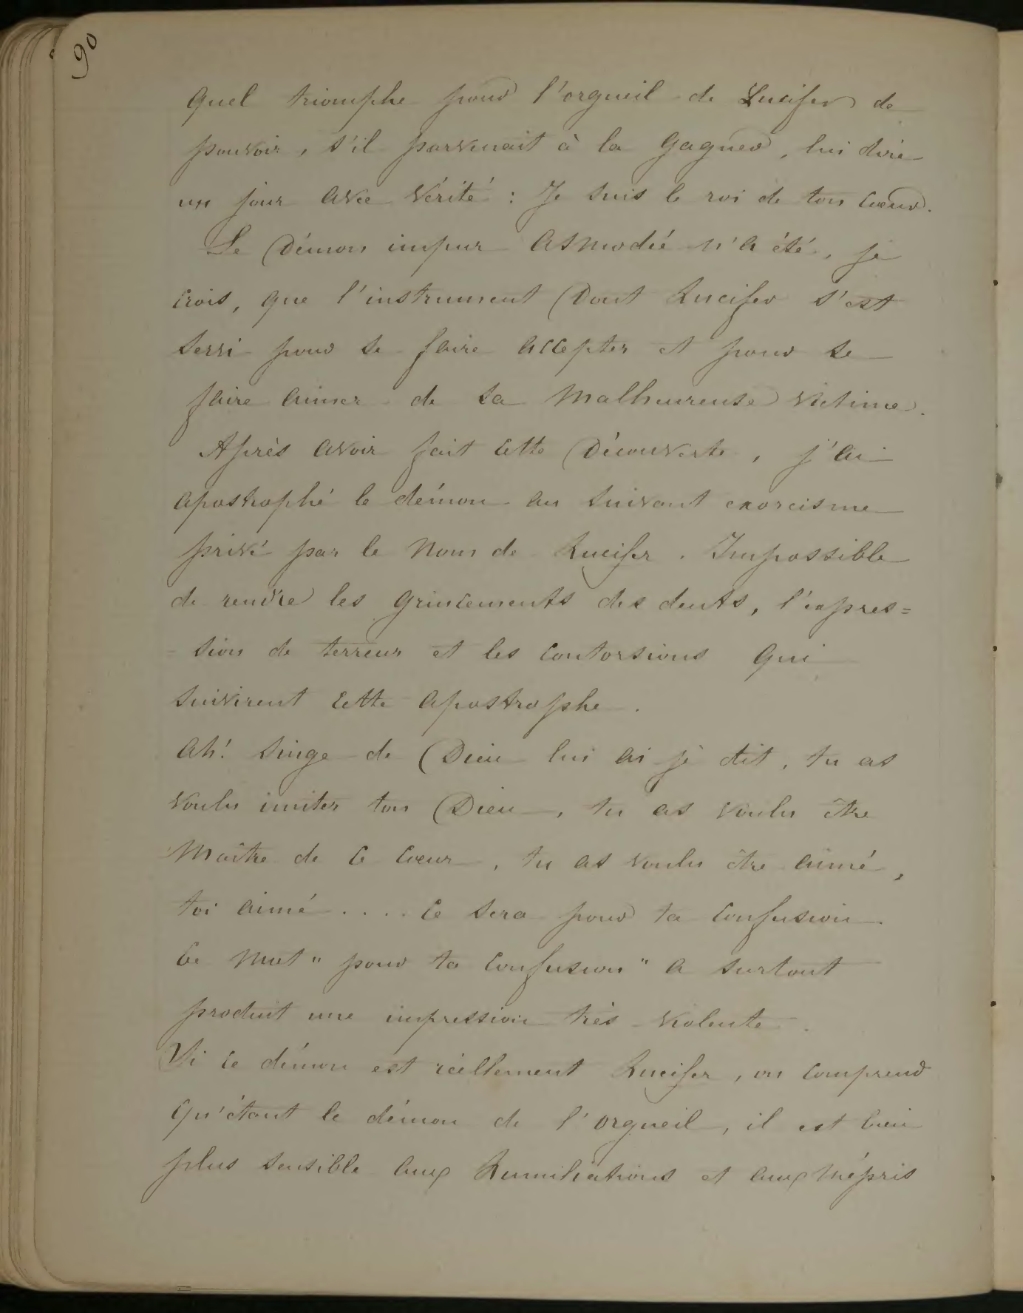 90
Quel triomphe pour l'orgueil de Lucifer de
pouvoir, s'il parvenait à la gagner, lui dire
un jour avec vérité : Je suis le roi de ton cœur.
Le Démon impur Asmodié n'a été, je
crois, que l'instrument Dont Lucifer s'est
servi pour se faire accepter et pour se
faire aimer de sa malheureuse victime.
Après avoir fait cette Découverte, j'ai
apostrophé le démon au suivant exorcisme
privé par le Nom de Lucifer. Impossible
de rendre les grincements des dents, l'expres=
-sion de terreur et les contorsions qui
suivirent cette apostrophe.
Ah! Singe de Dieu lui ai-je dit, tu as
voulu imiter ton Dieu, tu as voulu être
Maître de ce cœur, tu as voulu être aimé,
toi aimé .... ce sera pour ta confusion.
Ce mot " pour ta confusion " a surtout
produit une impression très-violente.
Si ce démon est réellement Lucifer, on comprend
qu'étant le démon de l'orgueil, il est bien
plus sensible aux humiliations et aux mépris